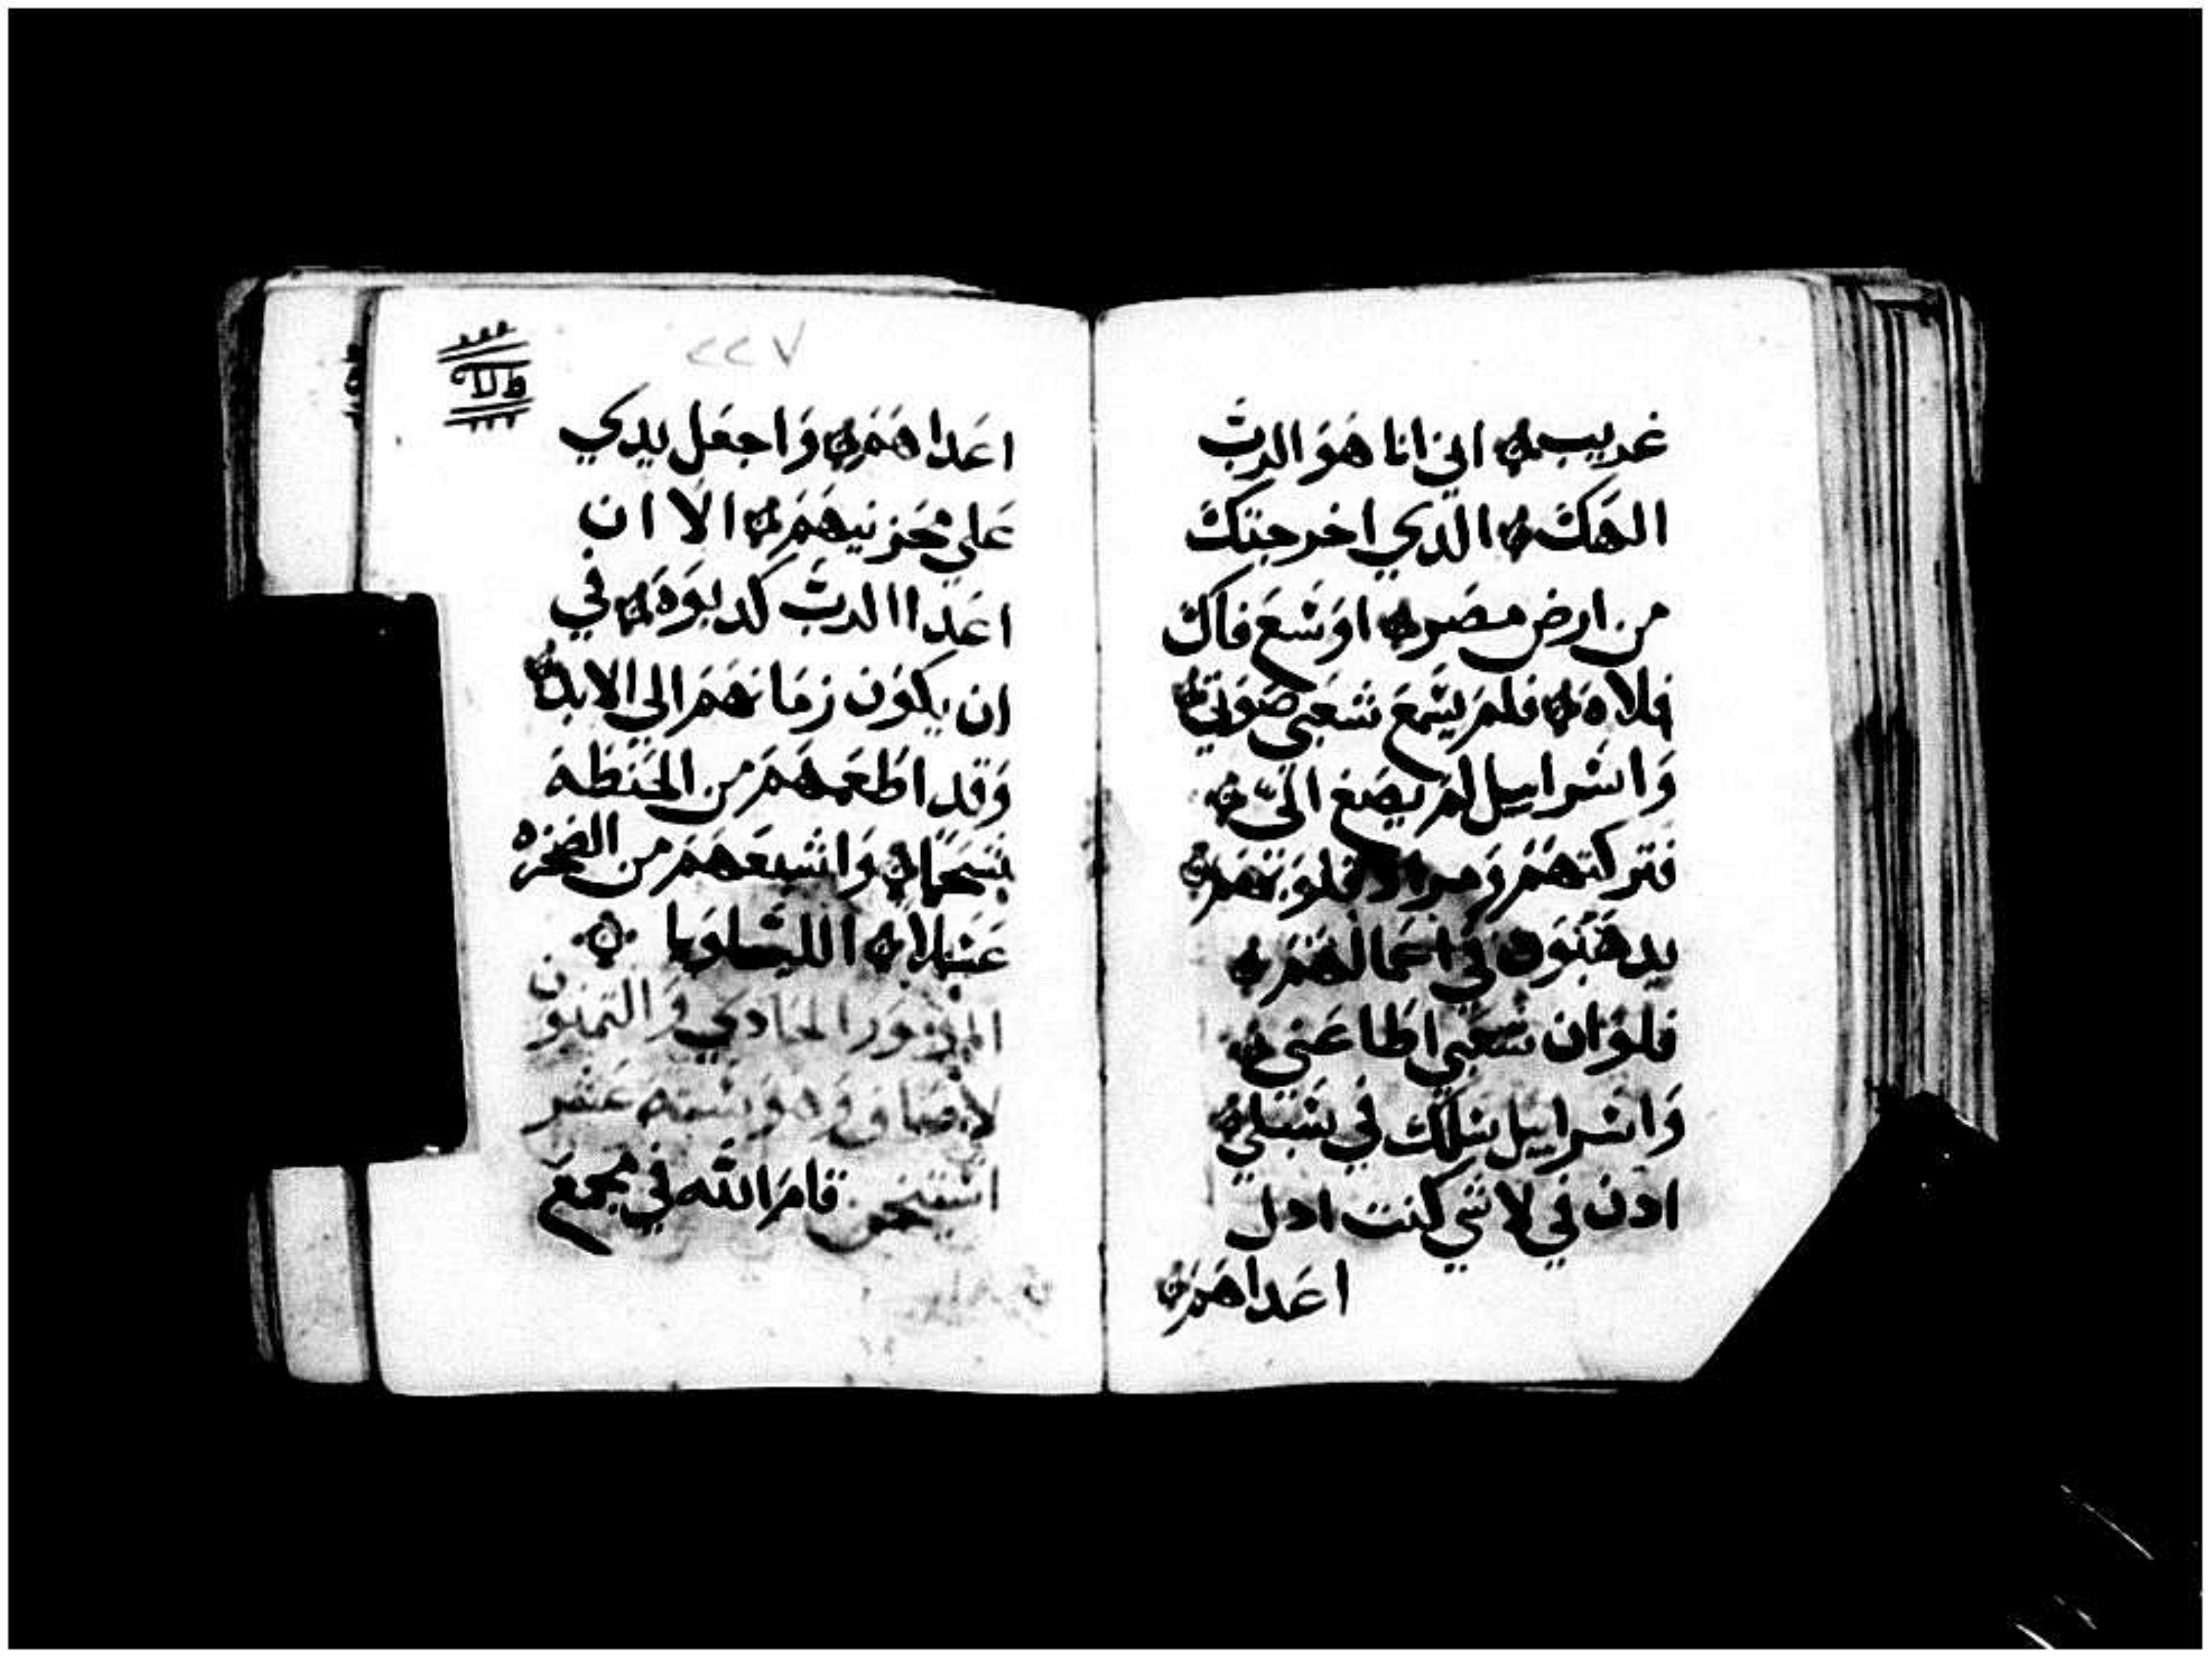 غريب اني انا هو الرب
الهك الذي اخرجتك
من ارض مصر اوسع فاك
فلاه فلم يسمع شعبي صوتي
واسراييل لم يصغ اليّ
فتركتهم ومراد قلوبهم
يدهبون في اعمالهم
فلو ان شعبي اطاعني
واسراييل سلك في سبلي
ادن في لاشي كنت ادل
اعداهم
٢٢٧
اعداهم واجعل يدي
علي محزنيهم الا ان
اعدا الرب كدبوه في
ان يكون زمانهم الي الابد
وقد اطعمهم من الحنطه
شحما واشبعهم من الصخره
عسلا الليلويا
المزمور الحادي والتمنون
لاصاف وهو سته عشر
استيخن قام الله في مجمع